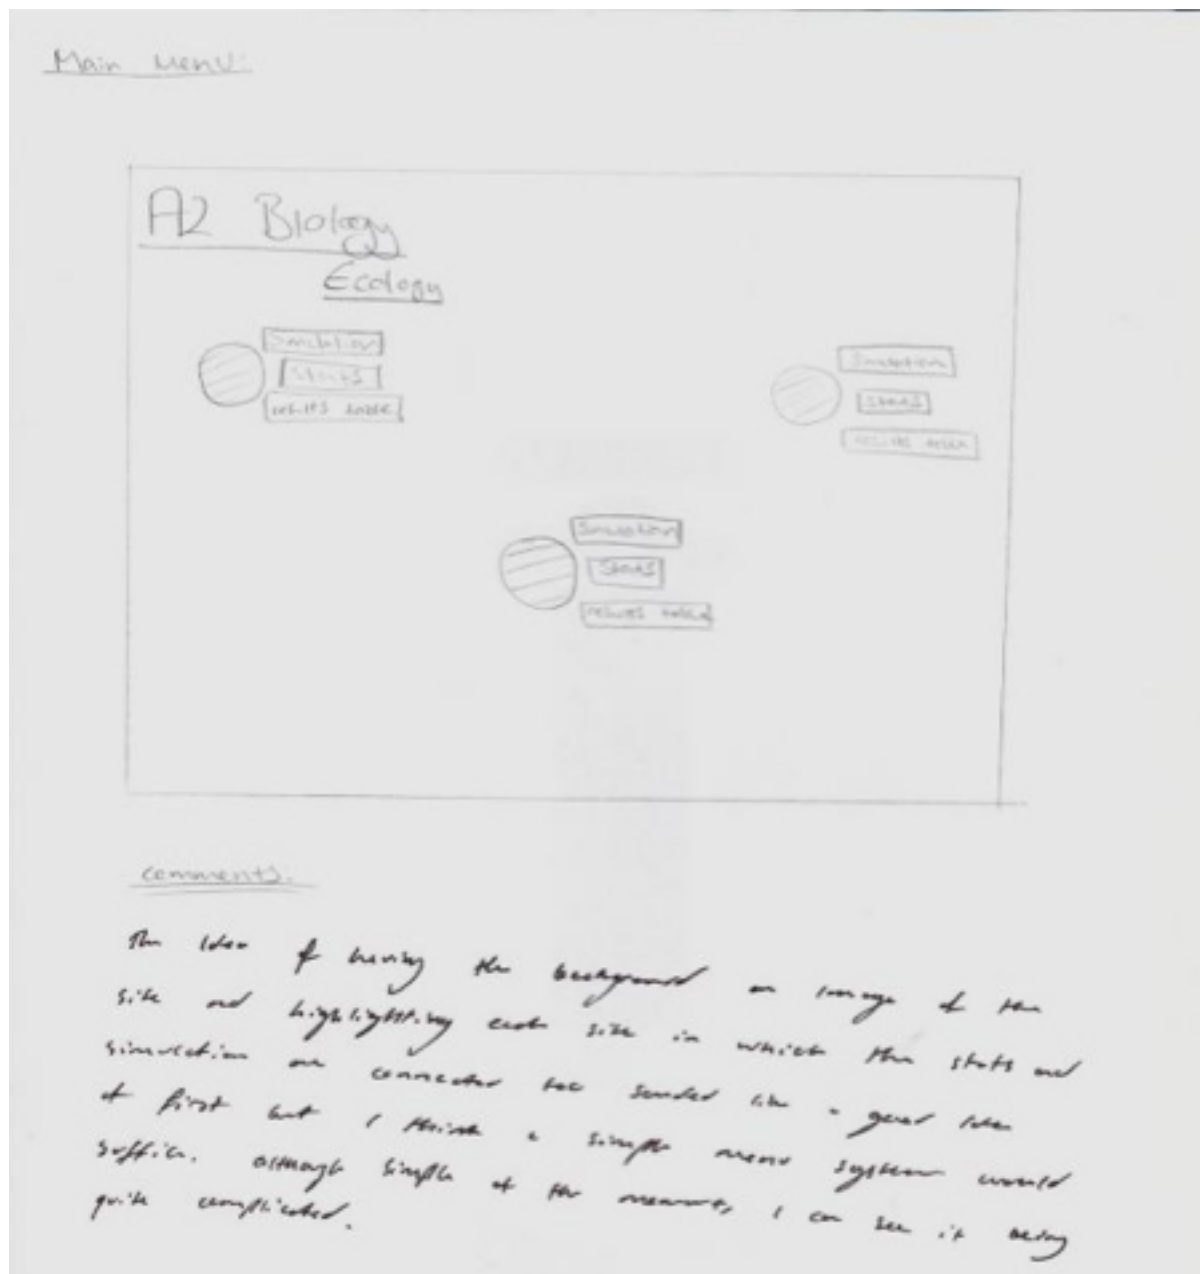 Main Menu:
A2 Biology
Ecology
Simulation
Stats
results table
Simulation
Stats
results table
Simulation
Stats
results table
comments:
The Idea of having the background an image of the
site and highlighting each site in which the stats and
simulation are connected too sounded like a good idea
at first but I think a simple menu system would
suffice. although simple at the moment, I can see it being
quite complicated.